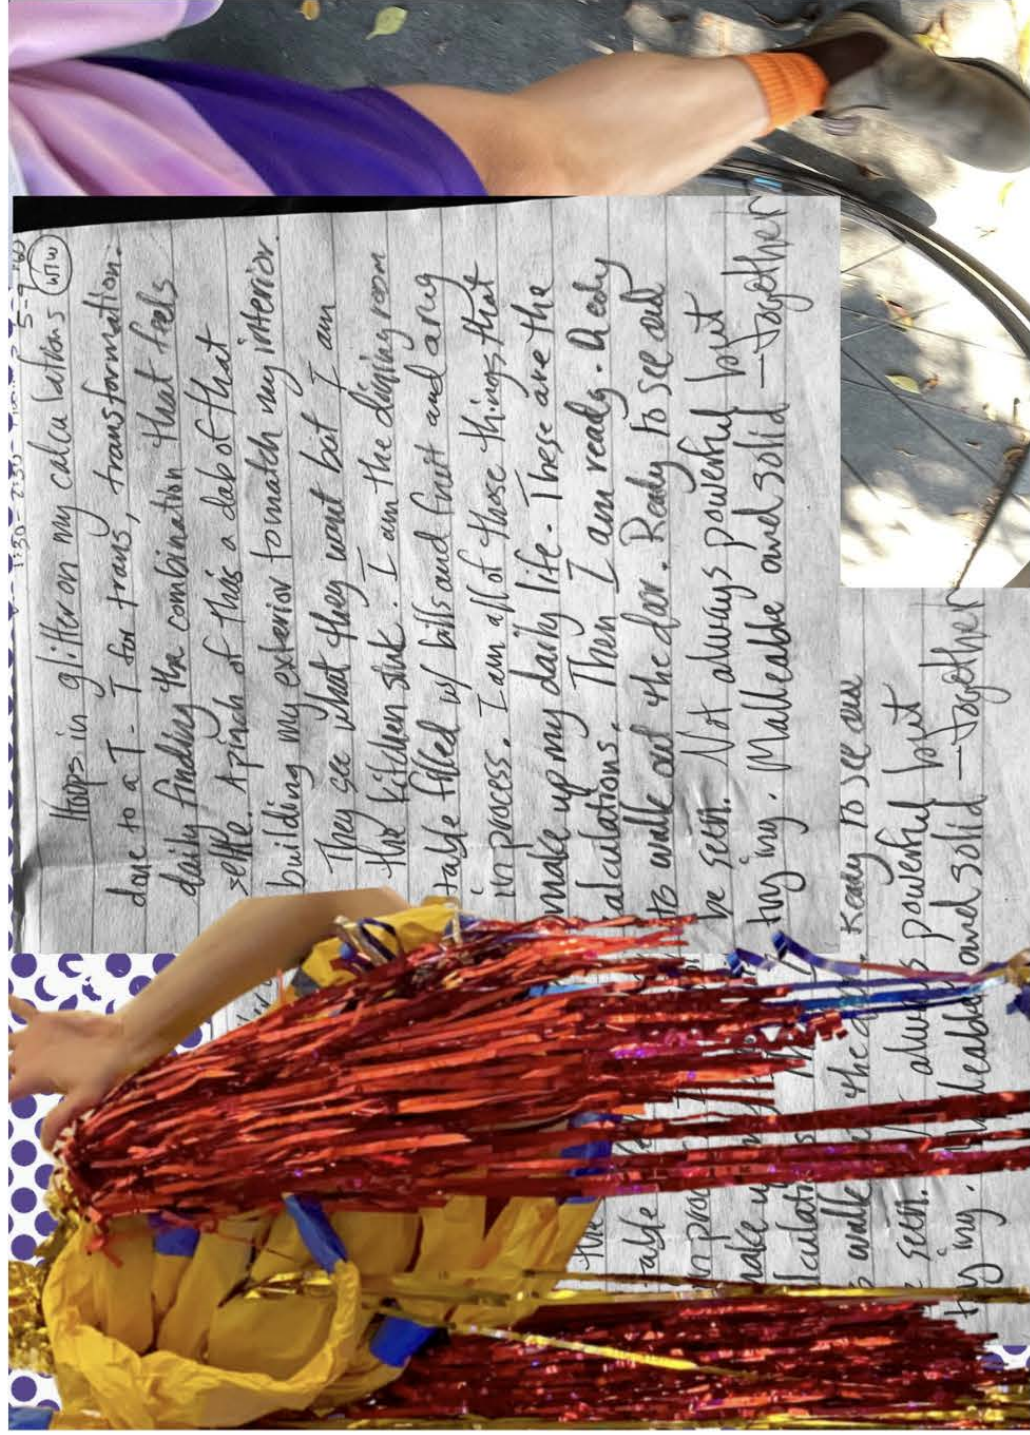 1:30-2:30 5-9-
Hops in glitter on my calculations WTW
done to a T - T for trans, transformation.
daily finding the combination that feels
settle. A pinch of this a dab of that
building my exterior to match my interior.
They see what they want but I am
the kitchen sink. I am the dining room
table filled w/ bills and fruit and a rug
in process. I am all of those things that
make up my daily life. These are the
alculations. Then I am ready. Ready
to walk out the door. Ready to see and
be seen. Not always powerful but
trying. Malleable and solid — together
the
table
in proc
make u
lculati
s walk the d Ready to see and
seen. always powerful but
trying. lleable and solid — together